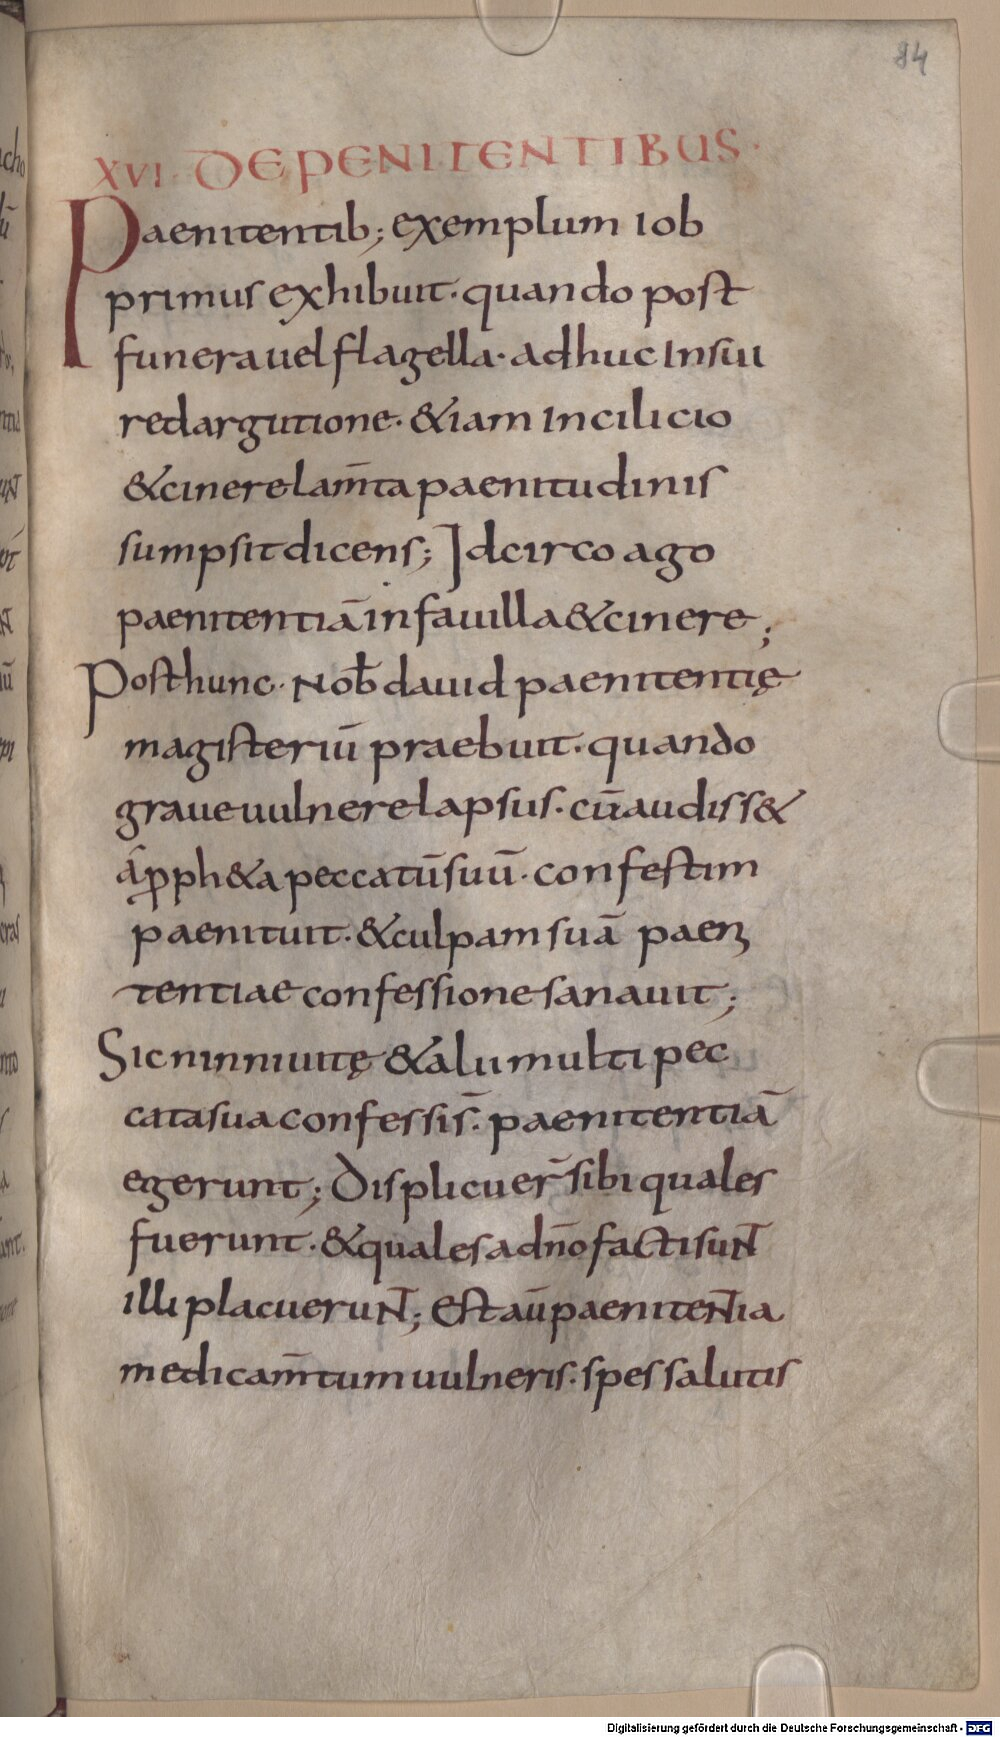 84
XVI · DE PENITENTIBUS ·
Paenitentib; exemplum iob
primus exhibuit · quando post
funera uel flagella · adhuc in sui
redargutione · & iam in cilicio
& cinere lam̅ta paenitudinis
sumpsit dicens; Idcirco ago
paenitentiā in fauilla & cinere;
Post hunc · nob̅ dauid paenitentię
magisteriū praebuit · quando
graue uulnere lapsus · cū audiss&
a̅ pph&a peccatū suū · confestim
paenituit · & culpam suā paeni
tentiae confessione sanauit;
Sic ninniuitę & alii multi pec
cata sua confessi s̅ · paenitentiā
egerunt; Displicuer̅ sibi quales
fuerunt · & quales a dn̅o facti sunt
illi placuerunt; Est au̅ paenitentia
medicam̅tum uulneris · spes salutis
Digitalisierung gefördert durch die Deutsche Forschungsgemeinschaft - DFG